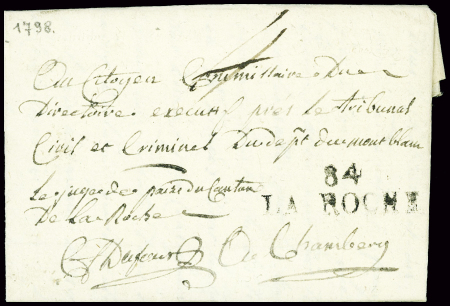 1798.
4
Au Citoyen Commissaire Du
Directoire executif pres le tribunal
Civil et Criminel Du dept du mont blanc
84
LA ROCHE
Le juge de paix du Canton
De La Roche
Dufour
A Chambery